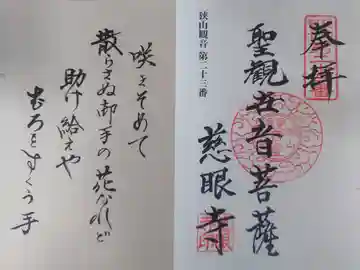 奉拝
聖觀世音菩薩
慈眼寺
狭山観音 第二十三番
咲きそめて
散らさぬ御手の花なれど
助け給えや
むろをすくう手